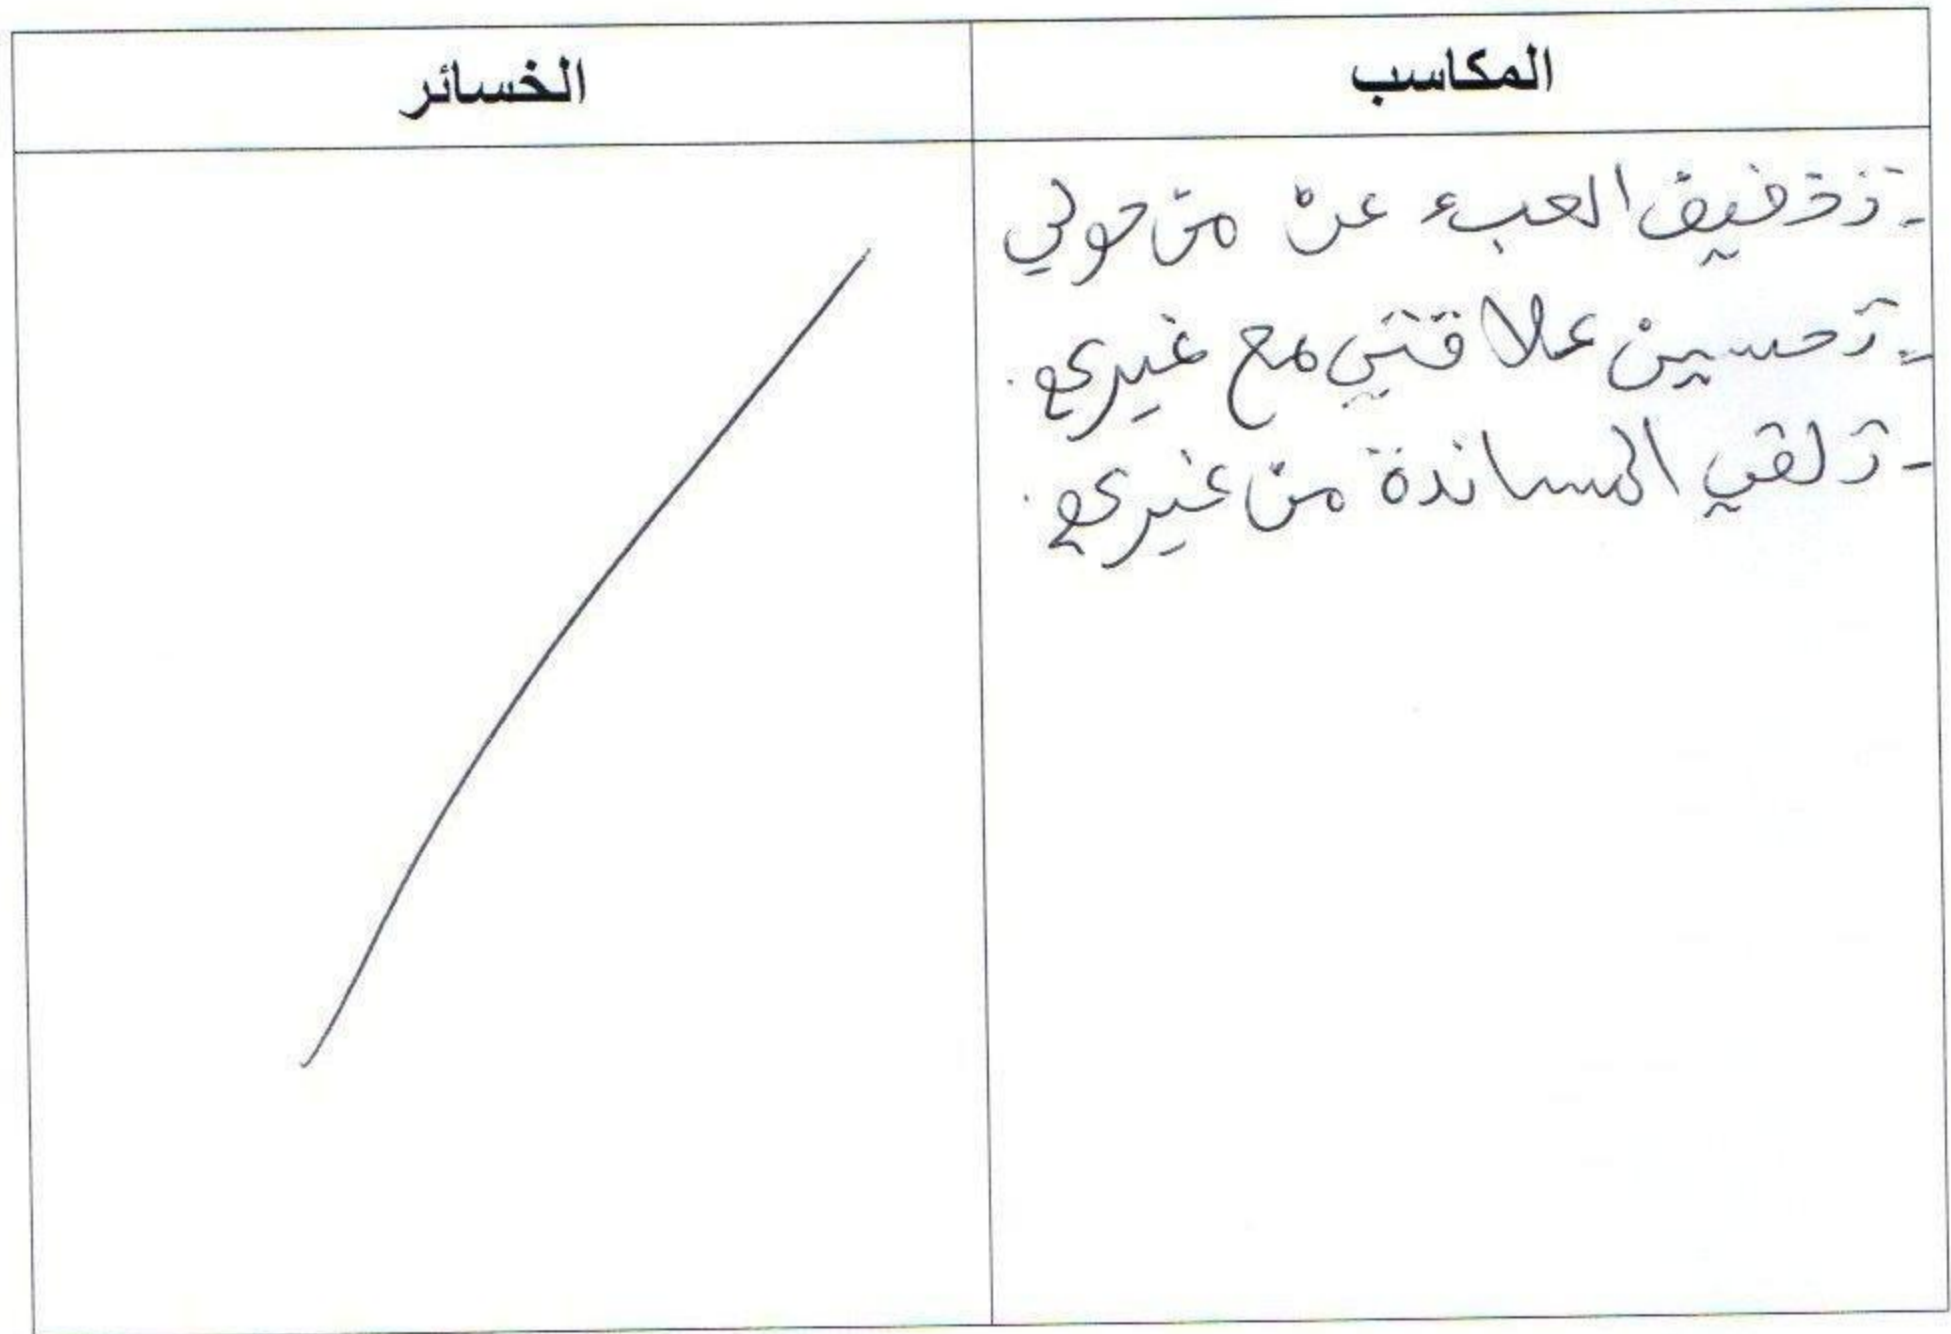 المكاسب
الخسائر
- تخفيف العبء عن من حولي
- تحسين علاقتي مع غيري.
- تلقي المساندة من غيري.